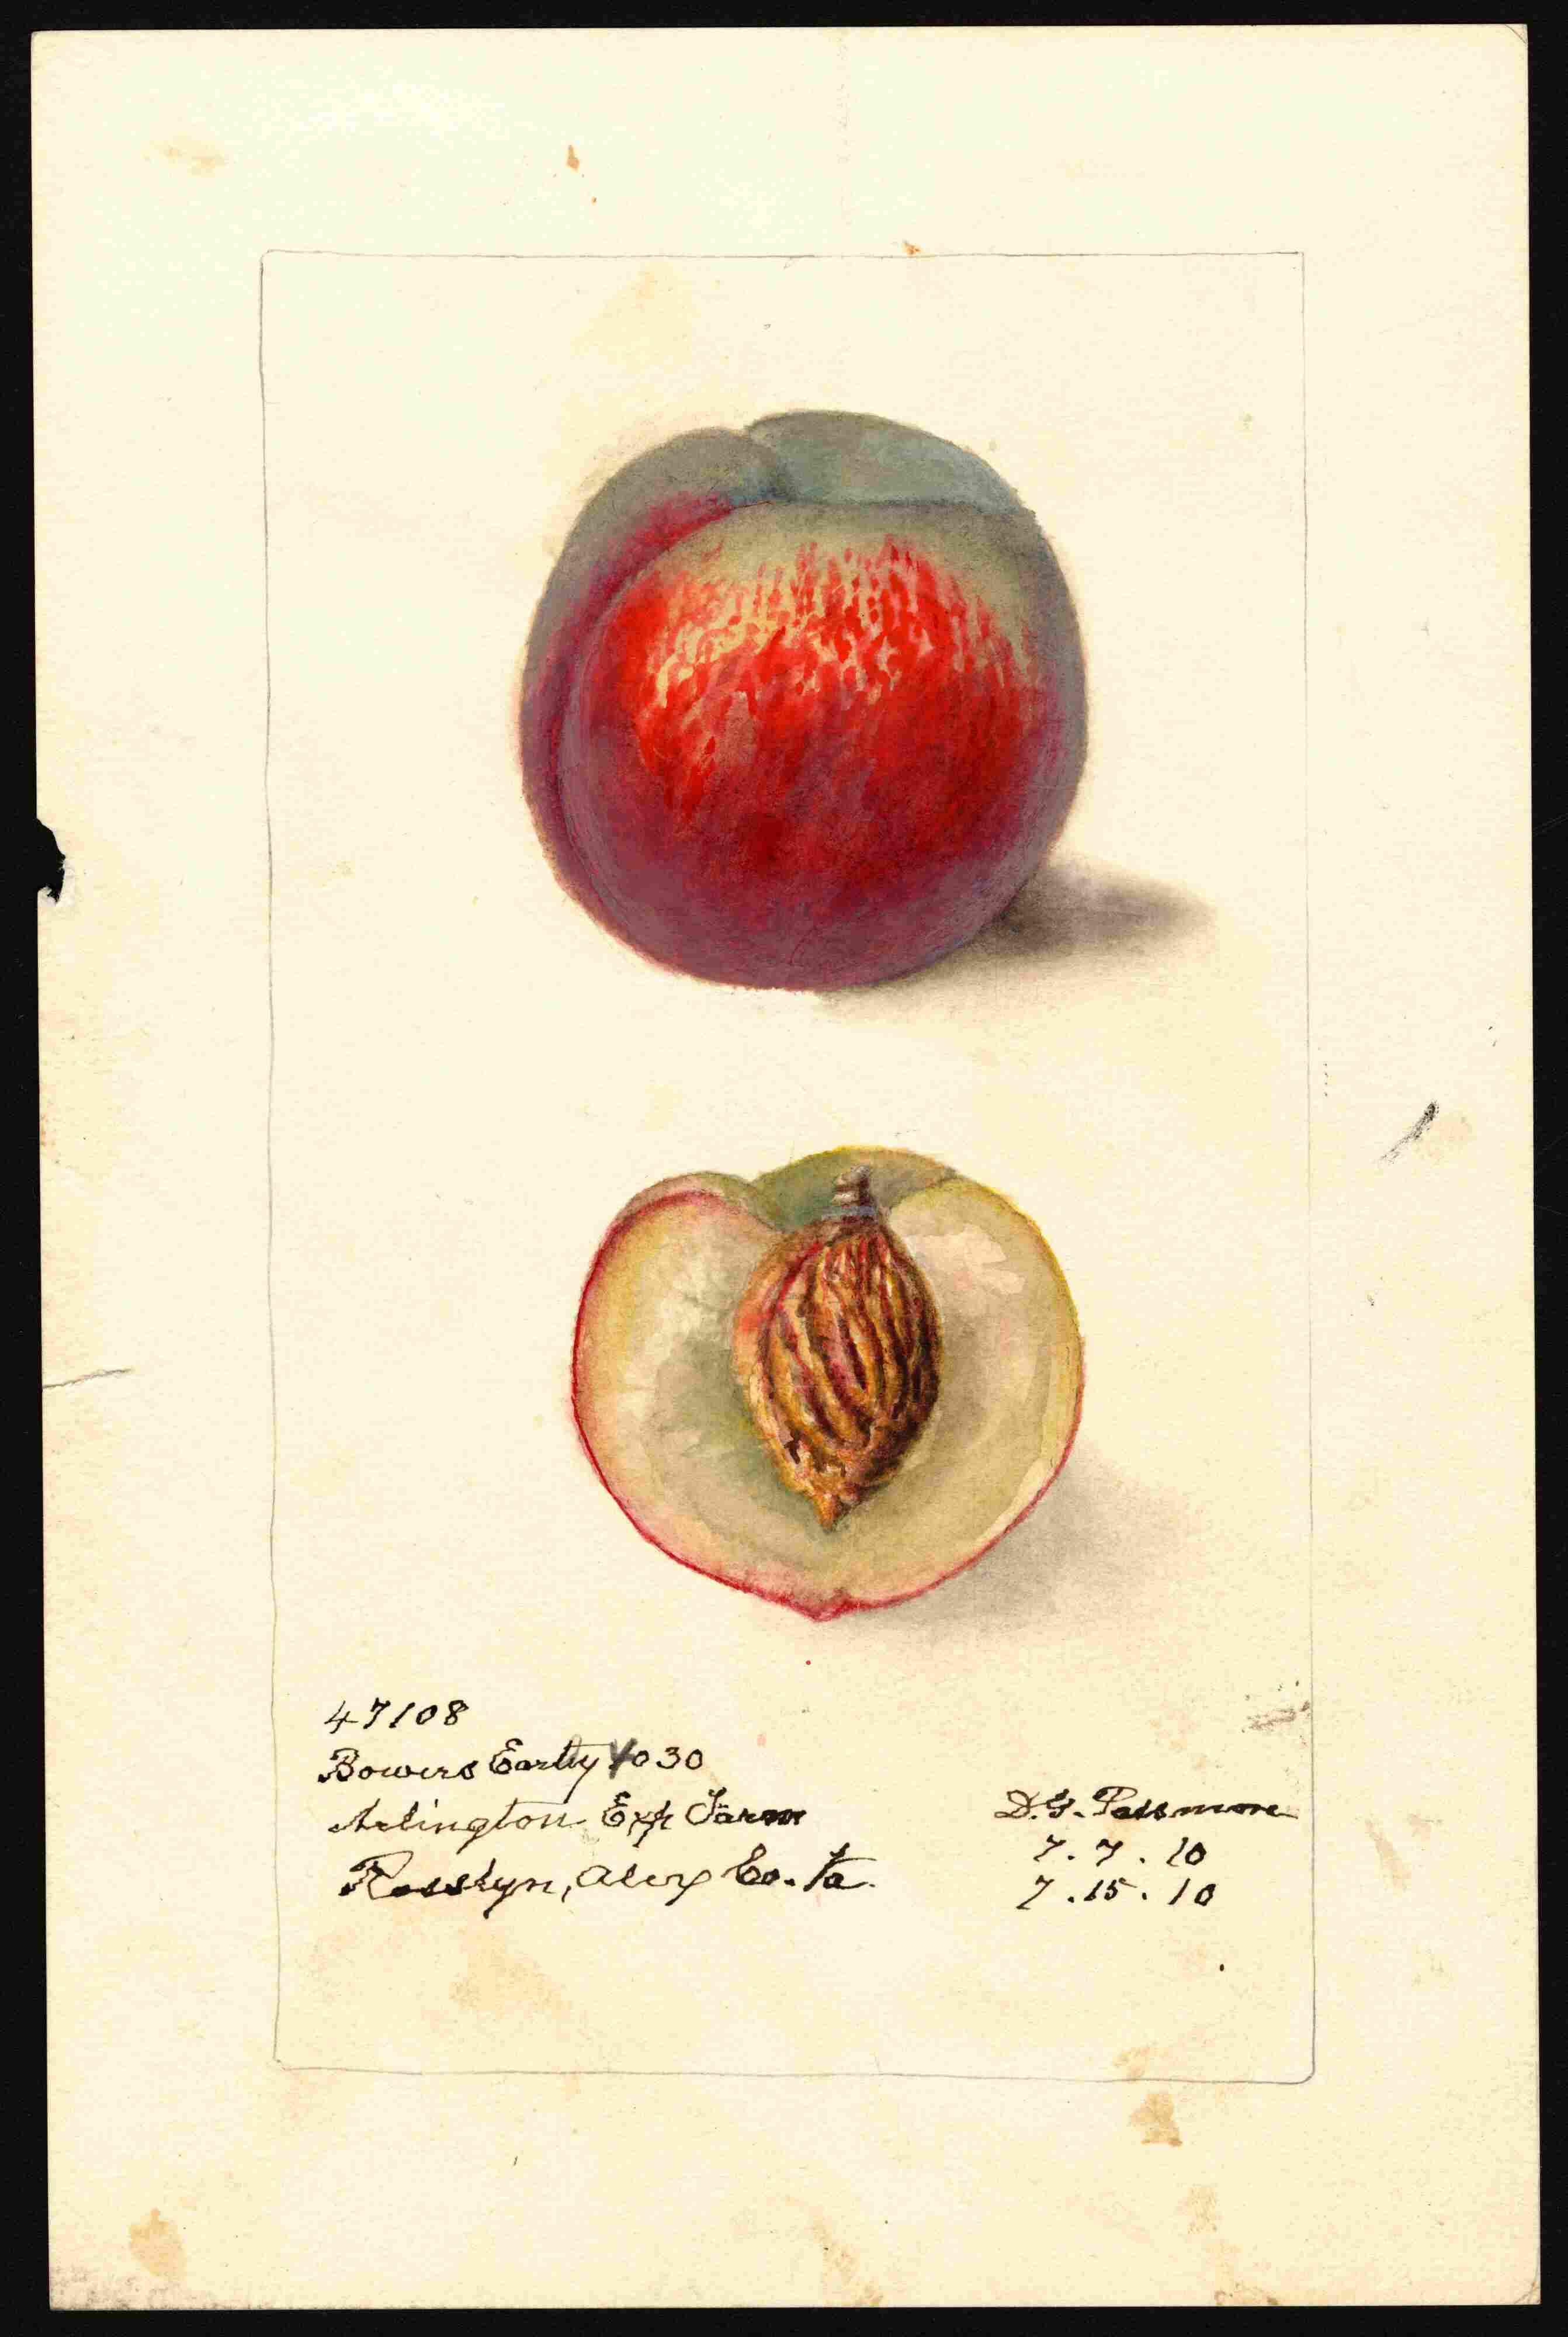 47108
Bowers Early 4030
Arlington Exp Farm
Rosslyn, Alex Co. Va.
D. G. Passmore
7. 7. 10
7. 15. 10